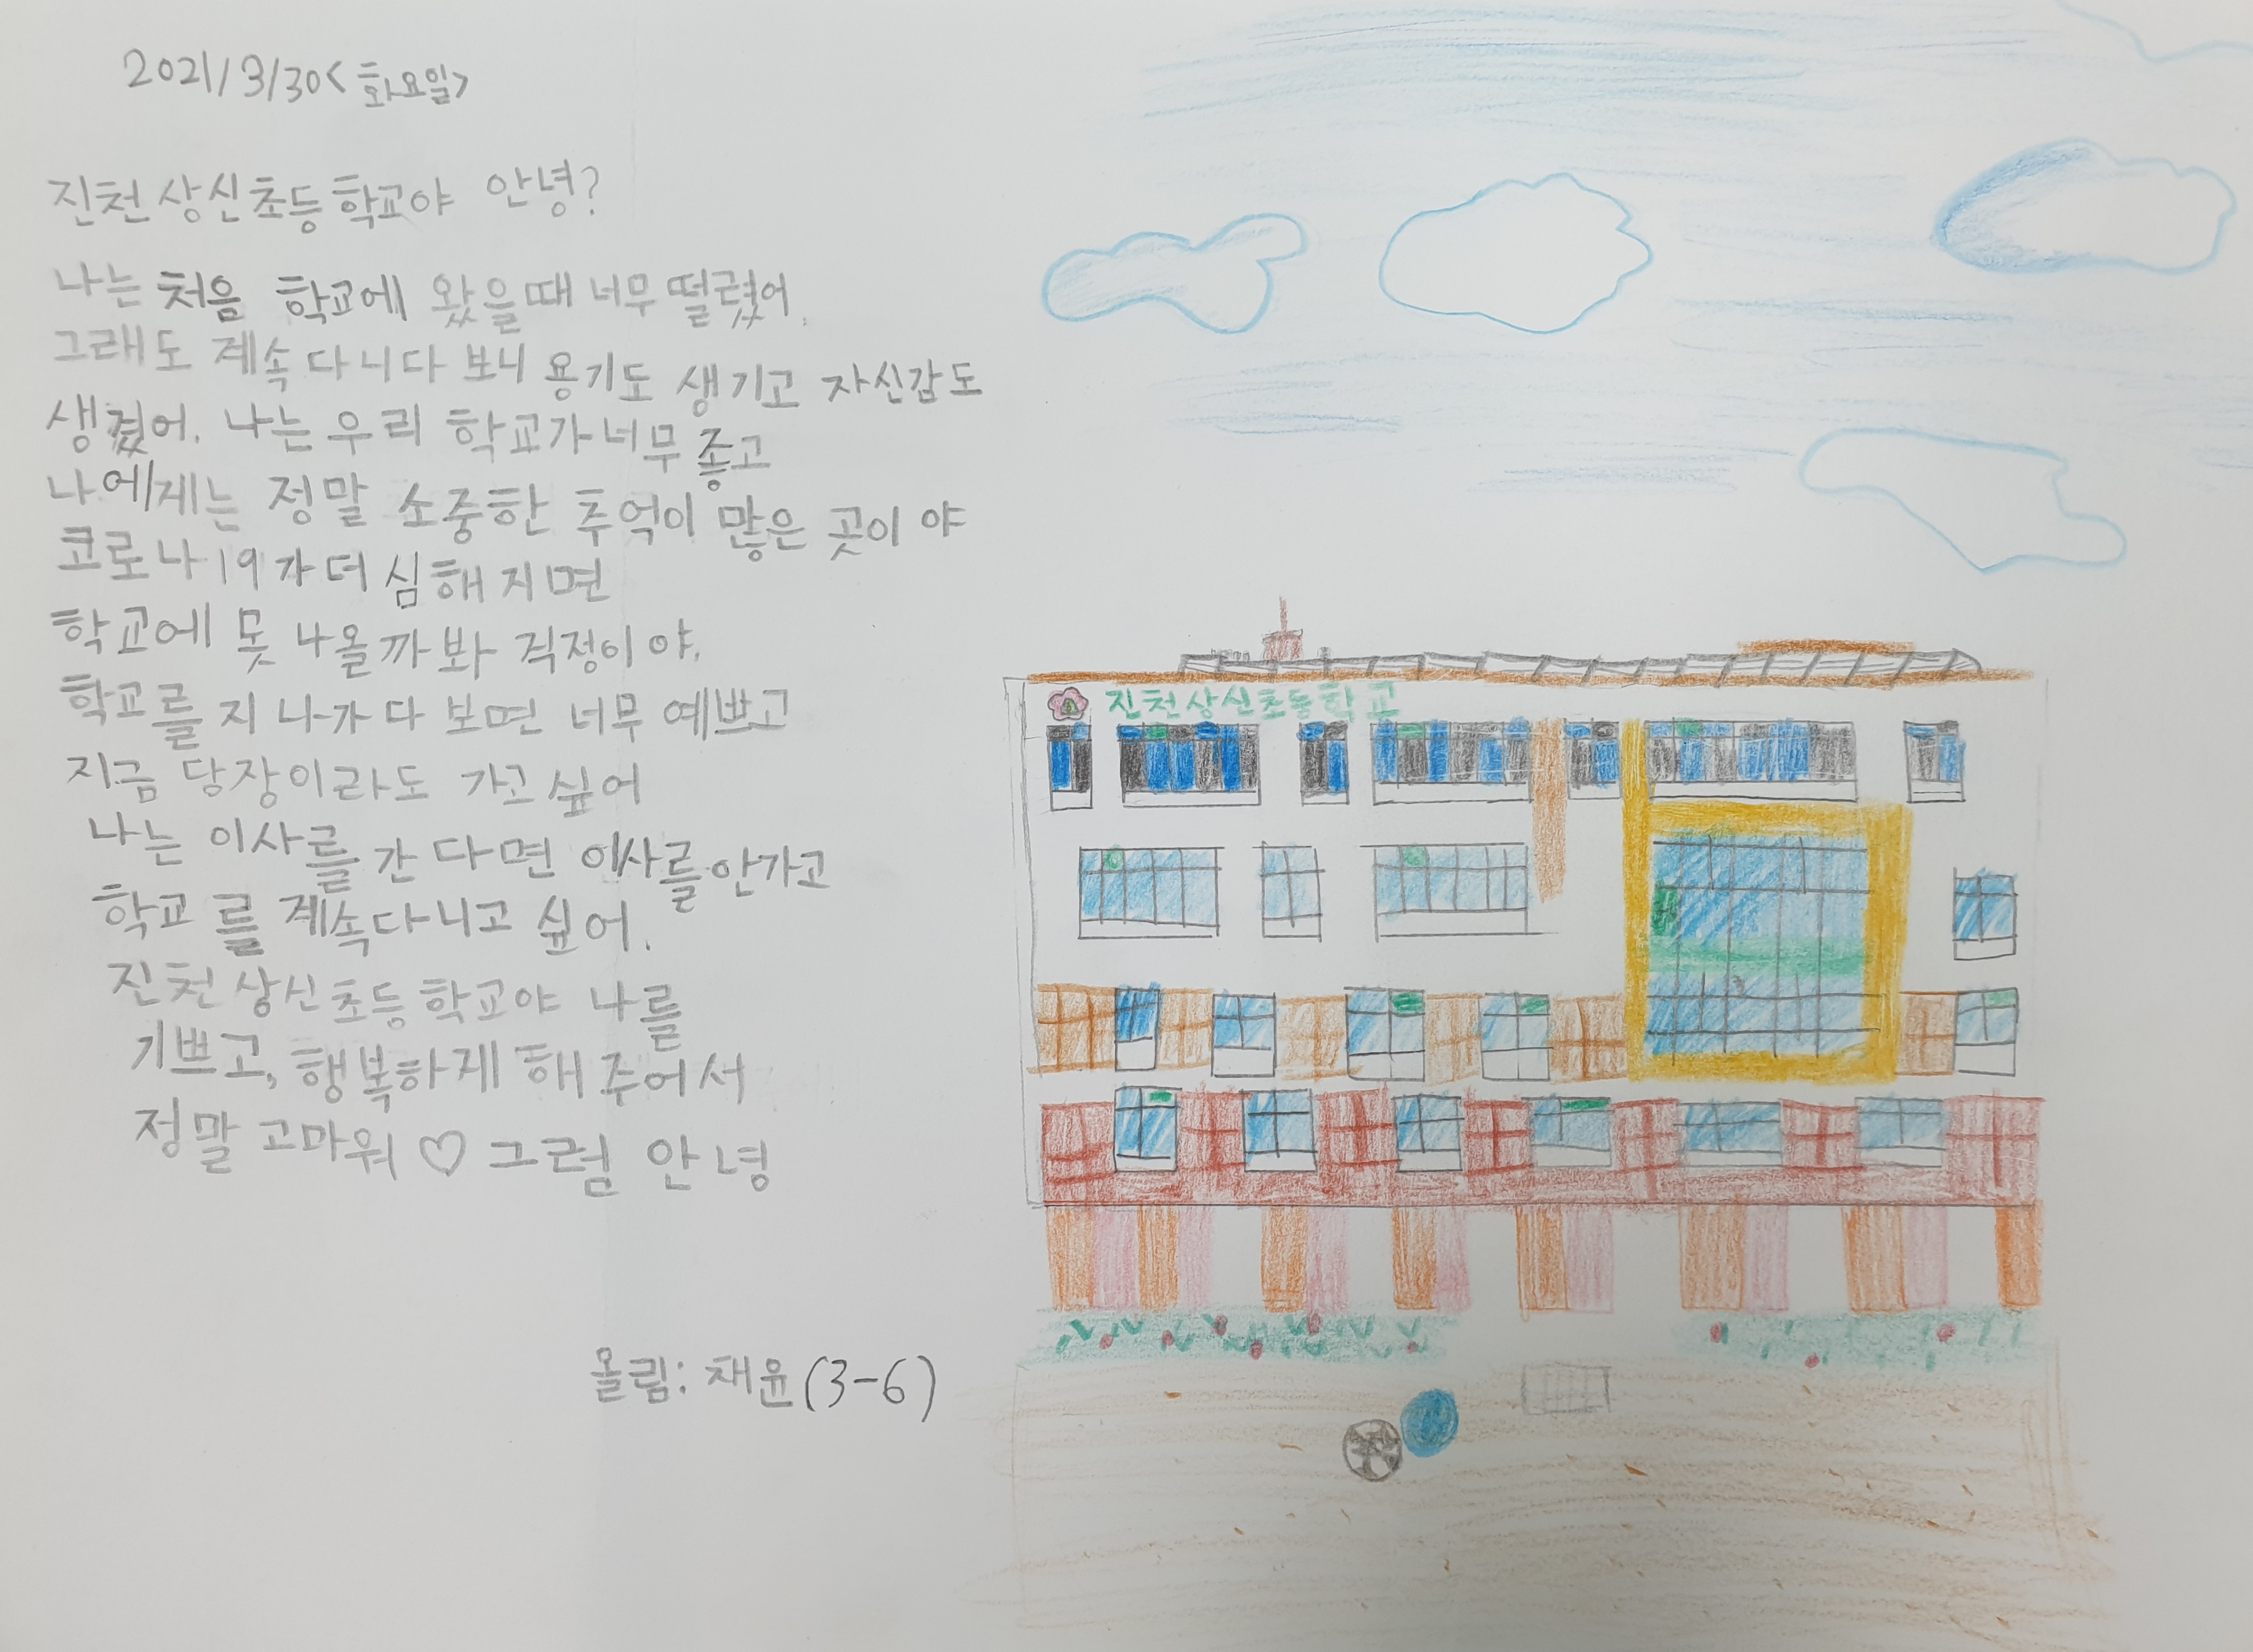 2021/3/30<화요일>
진천상신초등학교야 안녕?
나는 처음 학교에 왔을때 너무 떨렸어.
그래도 계속 다니다 보니 용기도 생기고 자신감도
생겼어. 나는 우리 학교가 너무 좋고
나에게는 정말 소중한 추억이 많은 곳이야
코로나19가 더 심해지면
학교에 못 나올까봐 걱정이야.
학교를 지나가다 보면 너무 예쁘고
지금 당장이라도 가고 싶어
나는 이사를 간다면 이사를 안가고
학교를 계속다니고 싶어.
진천상신초등학교야 나를
기쁘고, 행복하게 해 주어서
정말 고마워 ♡ 그럼 안녕
올림: 채윤(3-6)
진천상신초등학교